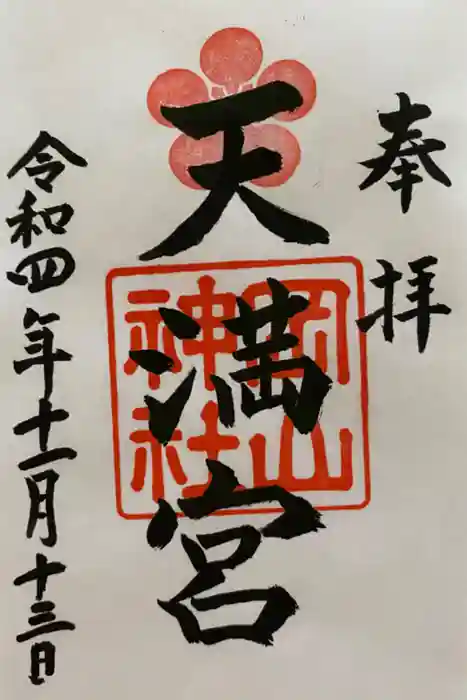 奉拝
天満宮
岡山
神社
令和四年十一月十三日